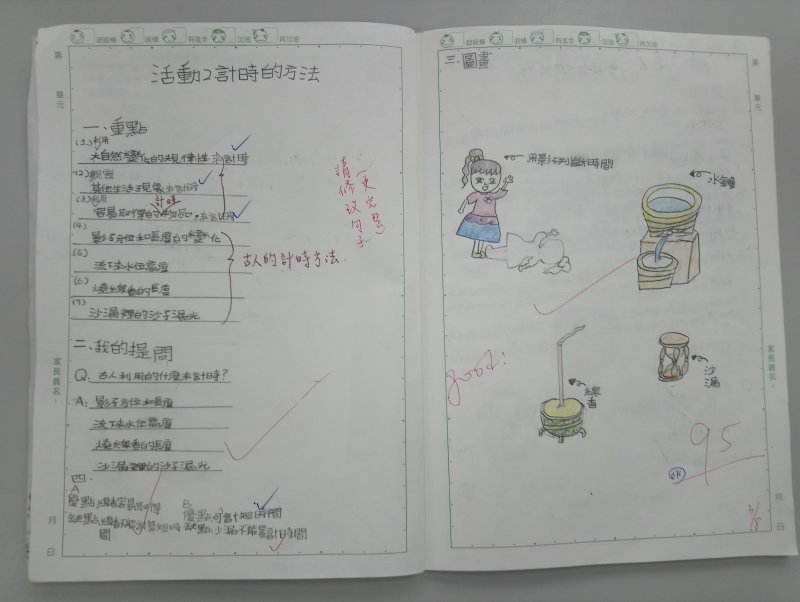 超級棒 很棒 有進步 加油 再加油
第
單元
活動2計時的方法
一、重點
(1)利用
大自然變化的規律性來計時
(2)觀察
其他生活現象來計時
(3)利用
計時
容易取得的物品
(4)
影子方位和長度的變化
(5)
流下來水位高度
(6)
燒線香的長度
(7)
沙漏裡的沙子漏光
古人的計時方法
請修改句子
(更完整)
二、我的提問
Q:古人利用的什麼來計時?
A:影子方位和長度
流下來水位高度
燒線香的長度
沙漏裡的沙子漏光
四、
A
優點:線香容易取得
缺點:線香不能計算短時
間
B
優點:可計短時間
缺點:沙漏不能累計時間
家長簽名:
月
日
超級棒 很棒 有進步 加油 再加油
第
單元
三、圖畫
用影子判斷時間
水鐘
線香
沙漏
good!
95
OK
3/8
家長簽名:
月
日